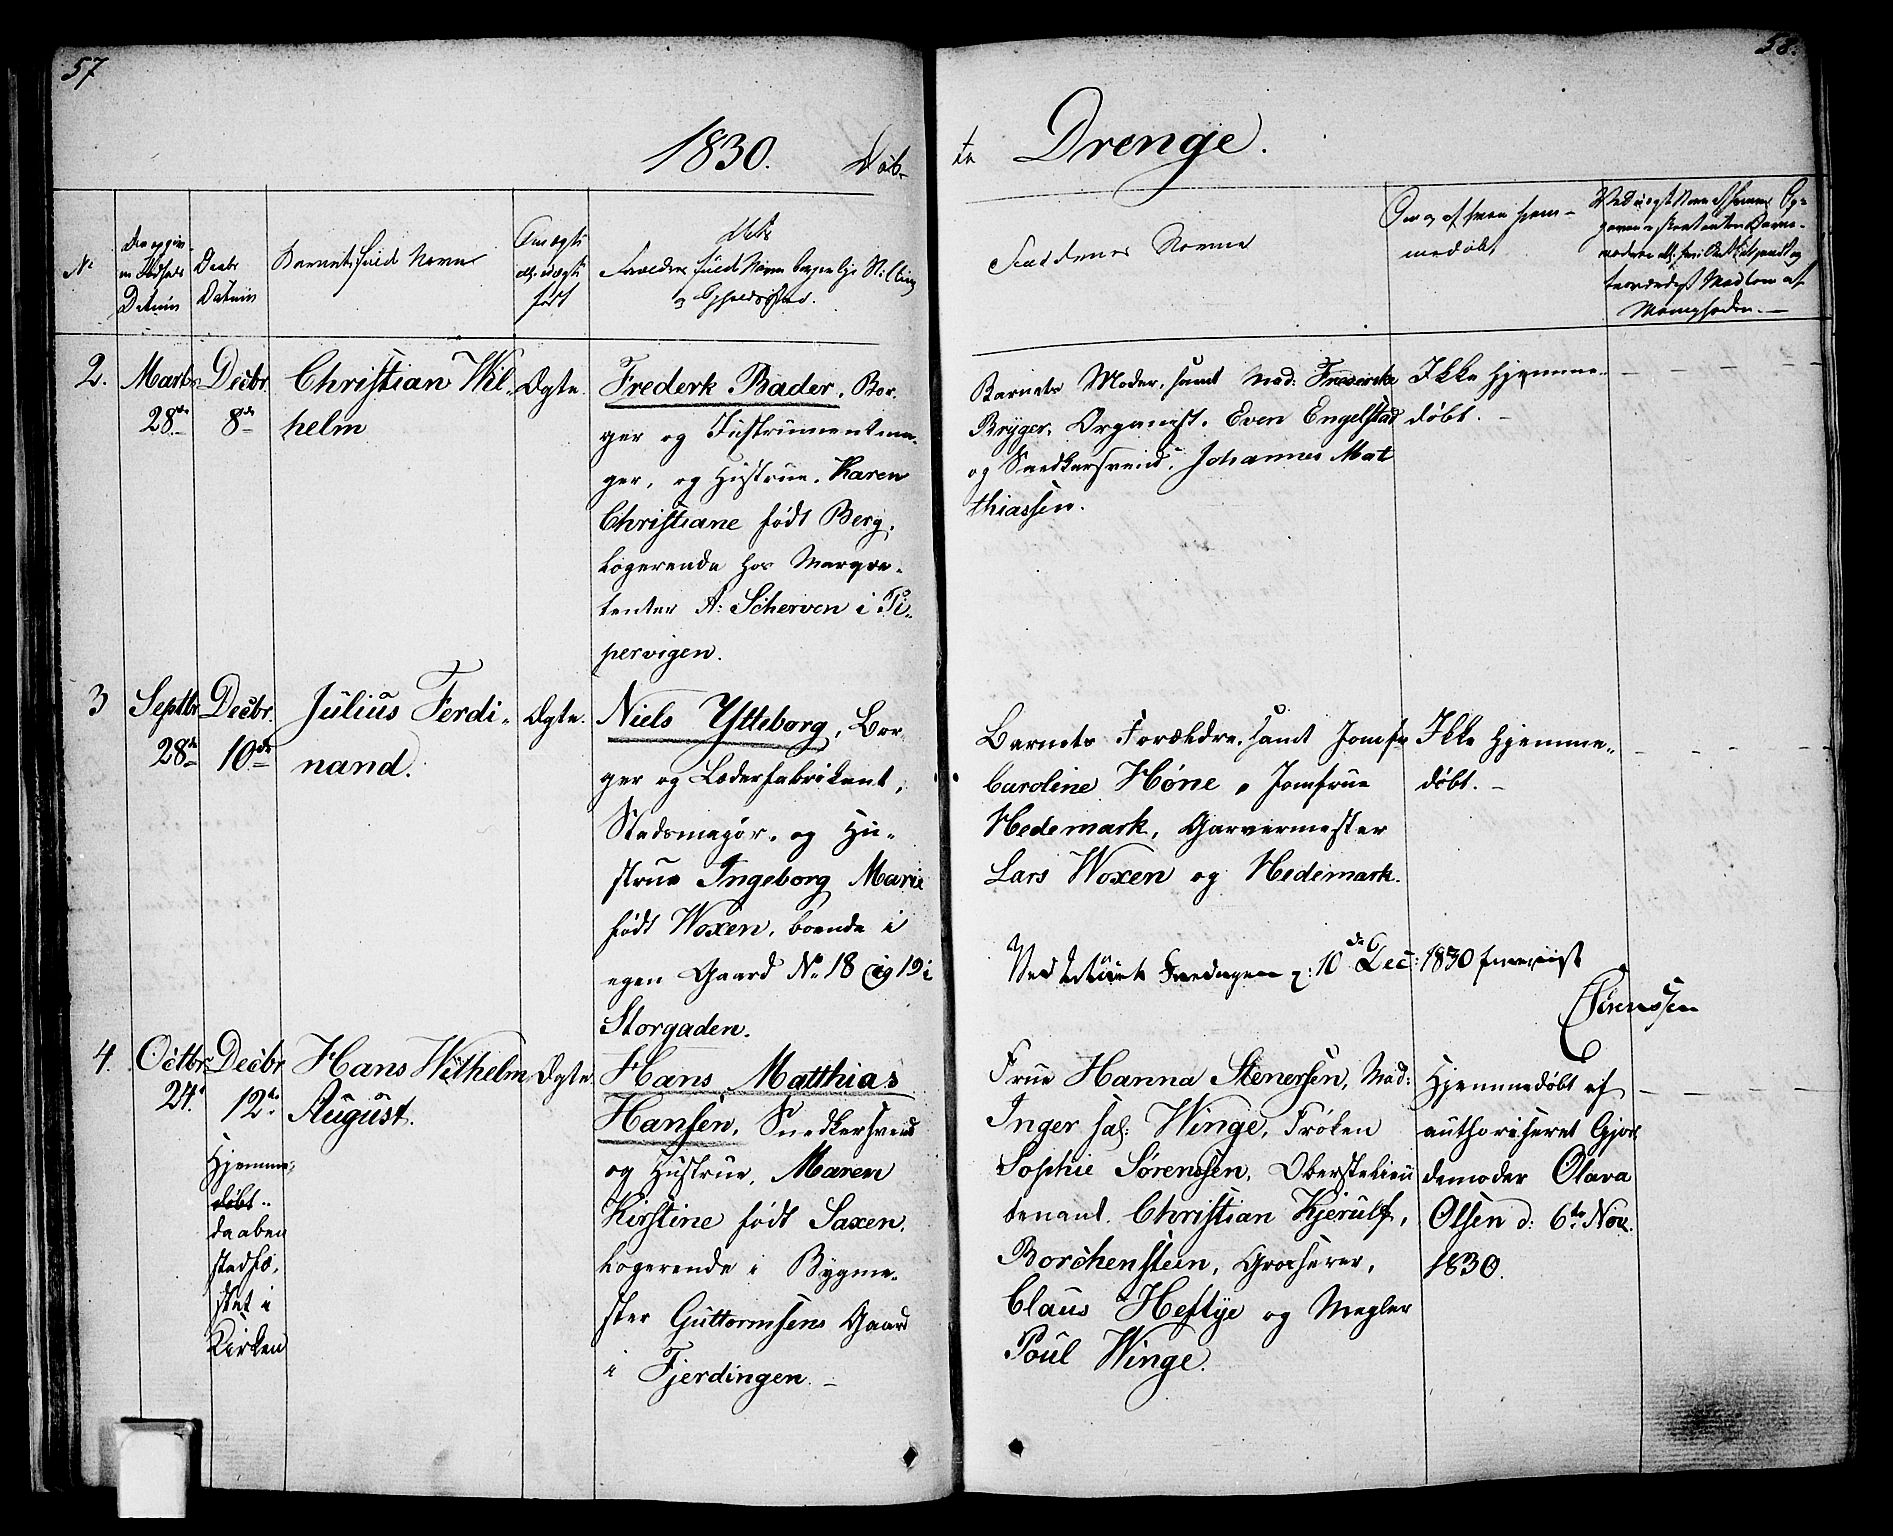 57
58.
1830. Døb-
te Drenge.
No
Datum
Døbt
Datum
Barnets fulde Navn
Om ægte
ell. uægte
født
dets
Forældres fulde Navn
og Opholdssted.
Faddernes Navne
Om og af hvem hjem-
medøbt
2.
Marts
28de
Decbr
8de
Christian Wil-
helm
Ægte.
Frederk Bader, Bor-
ger og Instrumentma-
ger, og Hustrue, Karen
Christiane født Berg,
logerende hos Marqve-
tenter A: Scherven i Pi-
pervigen.
Barnets Moder, samt Mad: Frederikke
Bryger, Organist, Even Engelstad
og Snedkersvend, Johannes Mat
thiassen.
Ikke Hjemme-
døbt. -
3
Septbr
28de
Decbr.
10de
Julius Ferdi-
nand.
Ægte.
Niels Ytteborg, Bor-
ger og Læderfabrikant,
Stadsmajor, og Hu-
strue Ingeborg Marie
født Woxen, boende i
egen Gaard No 18 og 19 i
Storgaden.
Barnets Forældre, samt Jomfr
Caroline Høne, Jomfrue
Hedemark, Garvermester
Lars Woxen og Hedemark.
Ikke Hjemme-
døbt. -
Ved 10de Dec: 1830
Sørenssen
4.
Octbr
24.
Decbr
12te
Hjemme-
døbt..
da aaben
stadfæ-
stet i
Kirken
Hans Wilhelm
August.
Ægte
Hans Matthias
Hansen, Snedkersvend
og Hustrue, Maren
Kirstine født Saxen,
Logerende i Bygme-
ster Guttormsens Gaard
i Fjerdingen. -
Frue Hanna Stenersen, Mad:
Inger sal: Winge, Frøken
Sophie Sørenssen, Oberstelieu
tenant Christian Kjerulf,
Borchenstein, Grosserer,
Claus Heftye og Megler
Poul Winge.
Hjemmedøbt af
authoriseret Gjor
demoder Olava
Olsen d: 6te Nov.
1830.